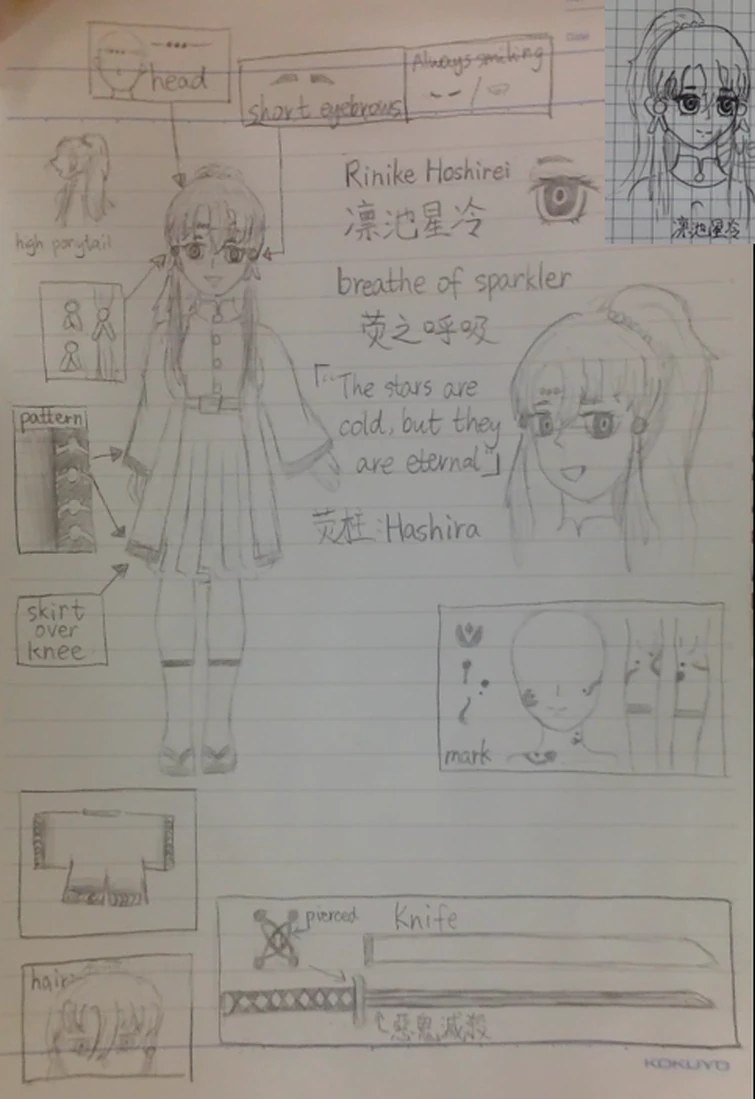 head
short eyebrows
Always smiling
high porytail
Rinike Hoshirei
凛池星冷
凛池星冷
breathe of sparkler
荧之呼吸
「"The stars are
cold, but they
are eternal"」
荧柱:Hashira
pattern
skirt
over
knee
mark
hair
pierced
Knife
惡鬼滅殺
KOKUYO